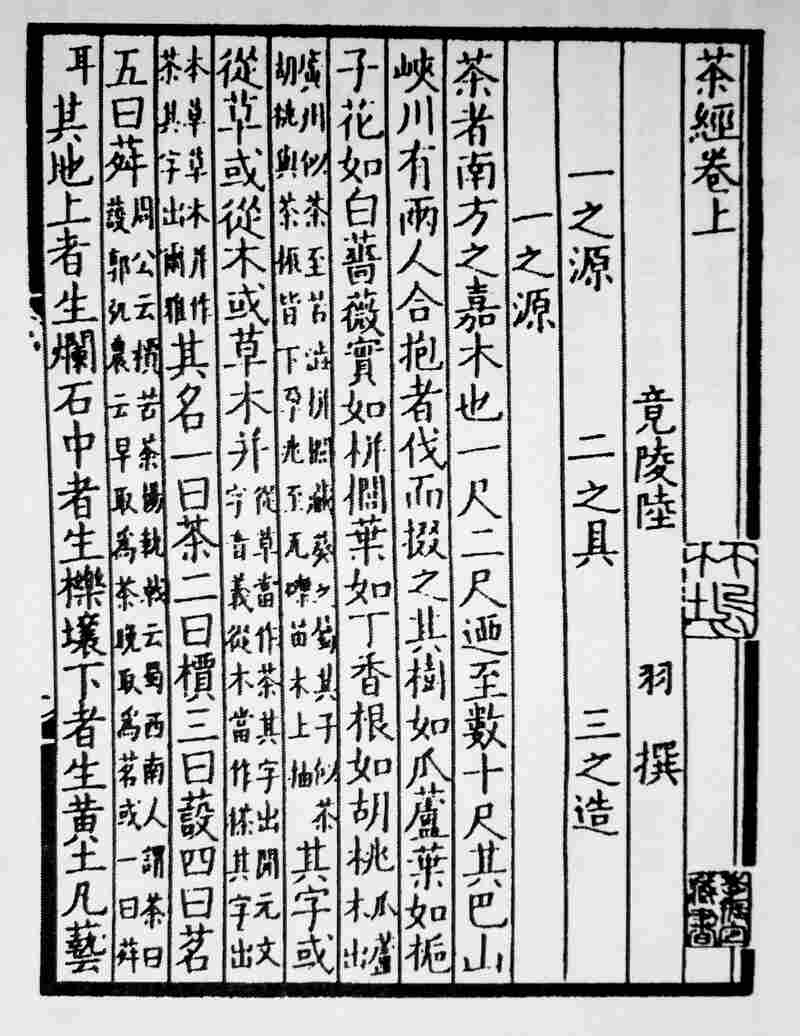 茶經卷上
竟陵陸　羽　撰
一之源　二之具　三之造
一之源
茶者南方之嘉木也一尺二尺迺至數十尺其巴山
峽川有兩人合抱者伐而掇之其樹如瓜蘆葉如梔
子花如白薔薇實如栟櫚葉如丁香根如胡桃瓜蘆木出
廣川似茶至苦澁栟櫚葵之其子似茶胡桃與茶根皆下孕兆至瓦礫苗木上抽其字或
從草或從木或草木并從草當作茶其字出開元文字音義從木當作搽其字出
本草草木并作茶其字出爾雅其名一曰茶二曰檟三曰蔎四曰茗
五曰荈周公云檟苦茶揚執戟云蜀西南人謂茶曰蔎郭弘農云早取為茶晚取為茗或一曰荈
耳其地上者生爛石中者生櫟壤下者生黃土凡藝